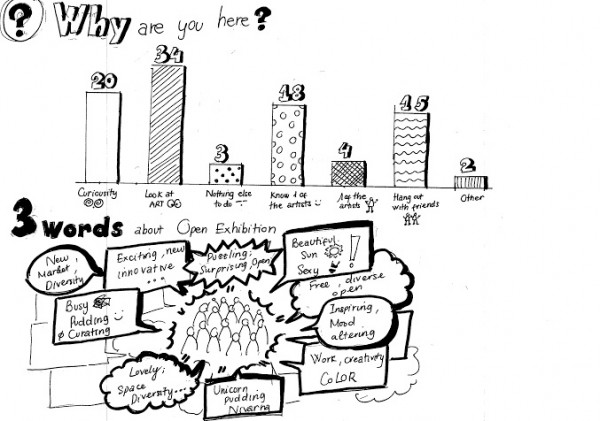 ?
Why are you here?
20
34
3
18
4
15
2
Curiosity
Look at
ART
Nothing else
to do
Know 1 of
the artists
1 of the
artists
Hang out
with friends
Other
3 words about Open Exhibition
New,
Market,
Diversity
Exciting, new
innovative
...
Puzzling,
Surprising, Open
Beautiful
Sun
Sexy
!
Free, diverse
open
Busy
Pudding
Curating
Inspiring,
Mood
altering
Lovely,
Space
Diversity...
Unicorn
pudding
Nivarna
Work, creativity
COLOR